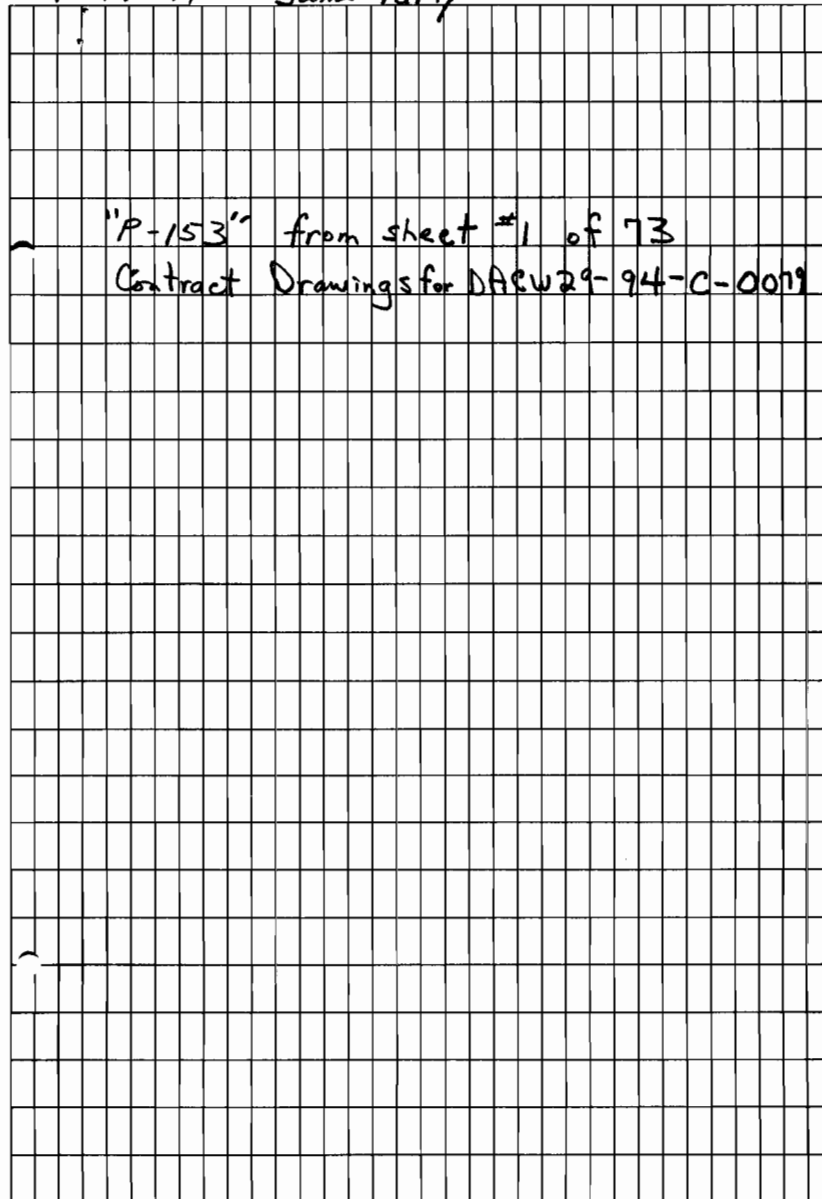 "P-153" from sheet #1 of 73
Contract Drawings for DACW29-94-C-0079